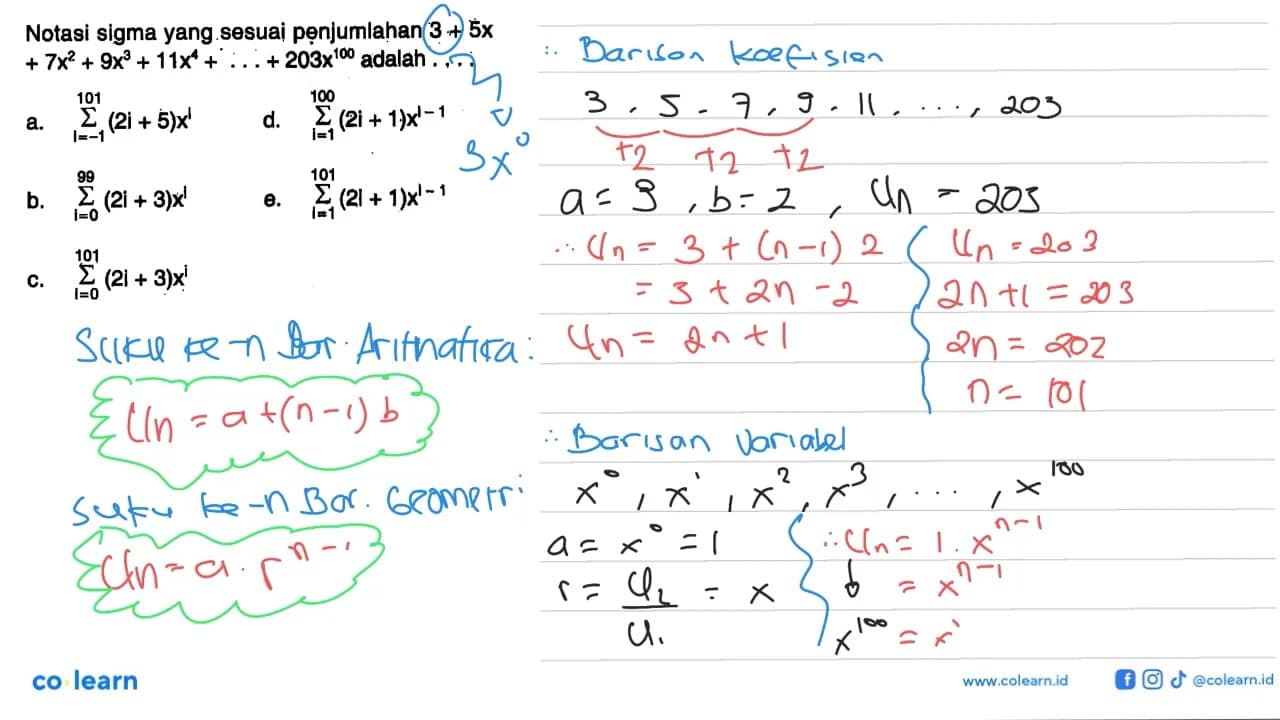 Notasi sigma yang sesuai penjumlahan 3 + 5x
+ 7x² + 9x³ + 11x⁴ + . . . + 203x¹⁰⁰ adalah . . . .
a. 101 Σ i=-1 (2i + 5)xⁱ
d. 100 Σ i=1 (2i + 1)xⁱ⁻¹
b. 99 Σ i=0 (2i + 3)xⁱ
e. 101 Σ i=1 (2i + 1)xⁱ⁻¹
c. 101 Σ i=0 (2i + 3)xⁱ
3x⁰
Suku ke-n Bar. Aritmatika :
Un = a + (n - 1) b
Suku ke-n Bar. Geometri :
Un = a . rⁿ⁻¹
∴ Barisan koefisien
3 , 5 , 7 , 9 , 11 , ..., 203
+2 +2 +2
a = 3 , b = 2 , Un = 203
∴ Un = 3 + (n-1) 2
= 3 + 2n - 2
Un = 2n + 1
Un = 203
2n + 1 = 203
2n = 202
n = 101
∴ Barisan Variabel
x⁰ , x¹ , x² , x³ , ... , x¹⁰⁰
a = x⁰ = 1
r = U₂ / U₁ = x
∴ Un = 1 . xⁿ⁻¹
= xⁿ⁻¹
x¹⁰⁰ = x
co learn
www.colearn.id
@colearn.id